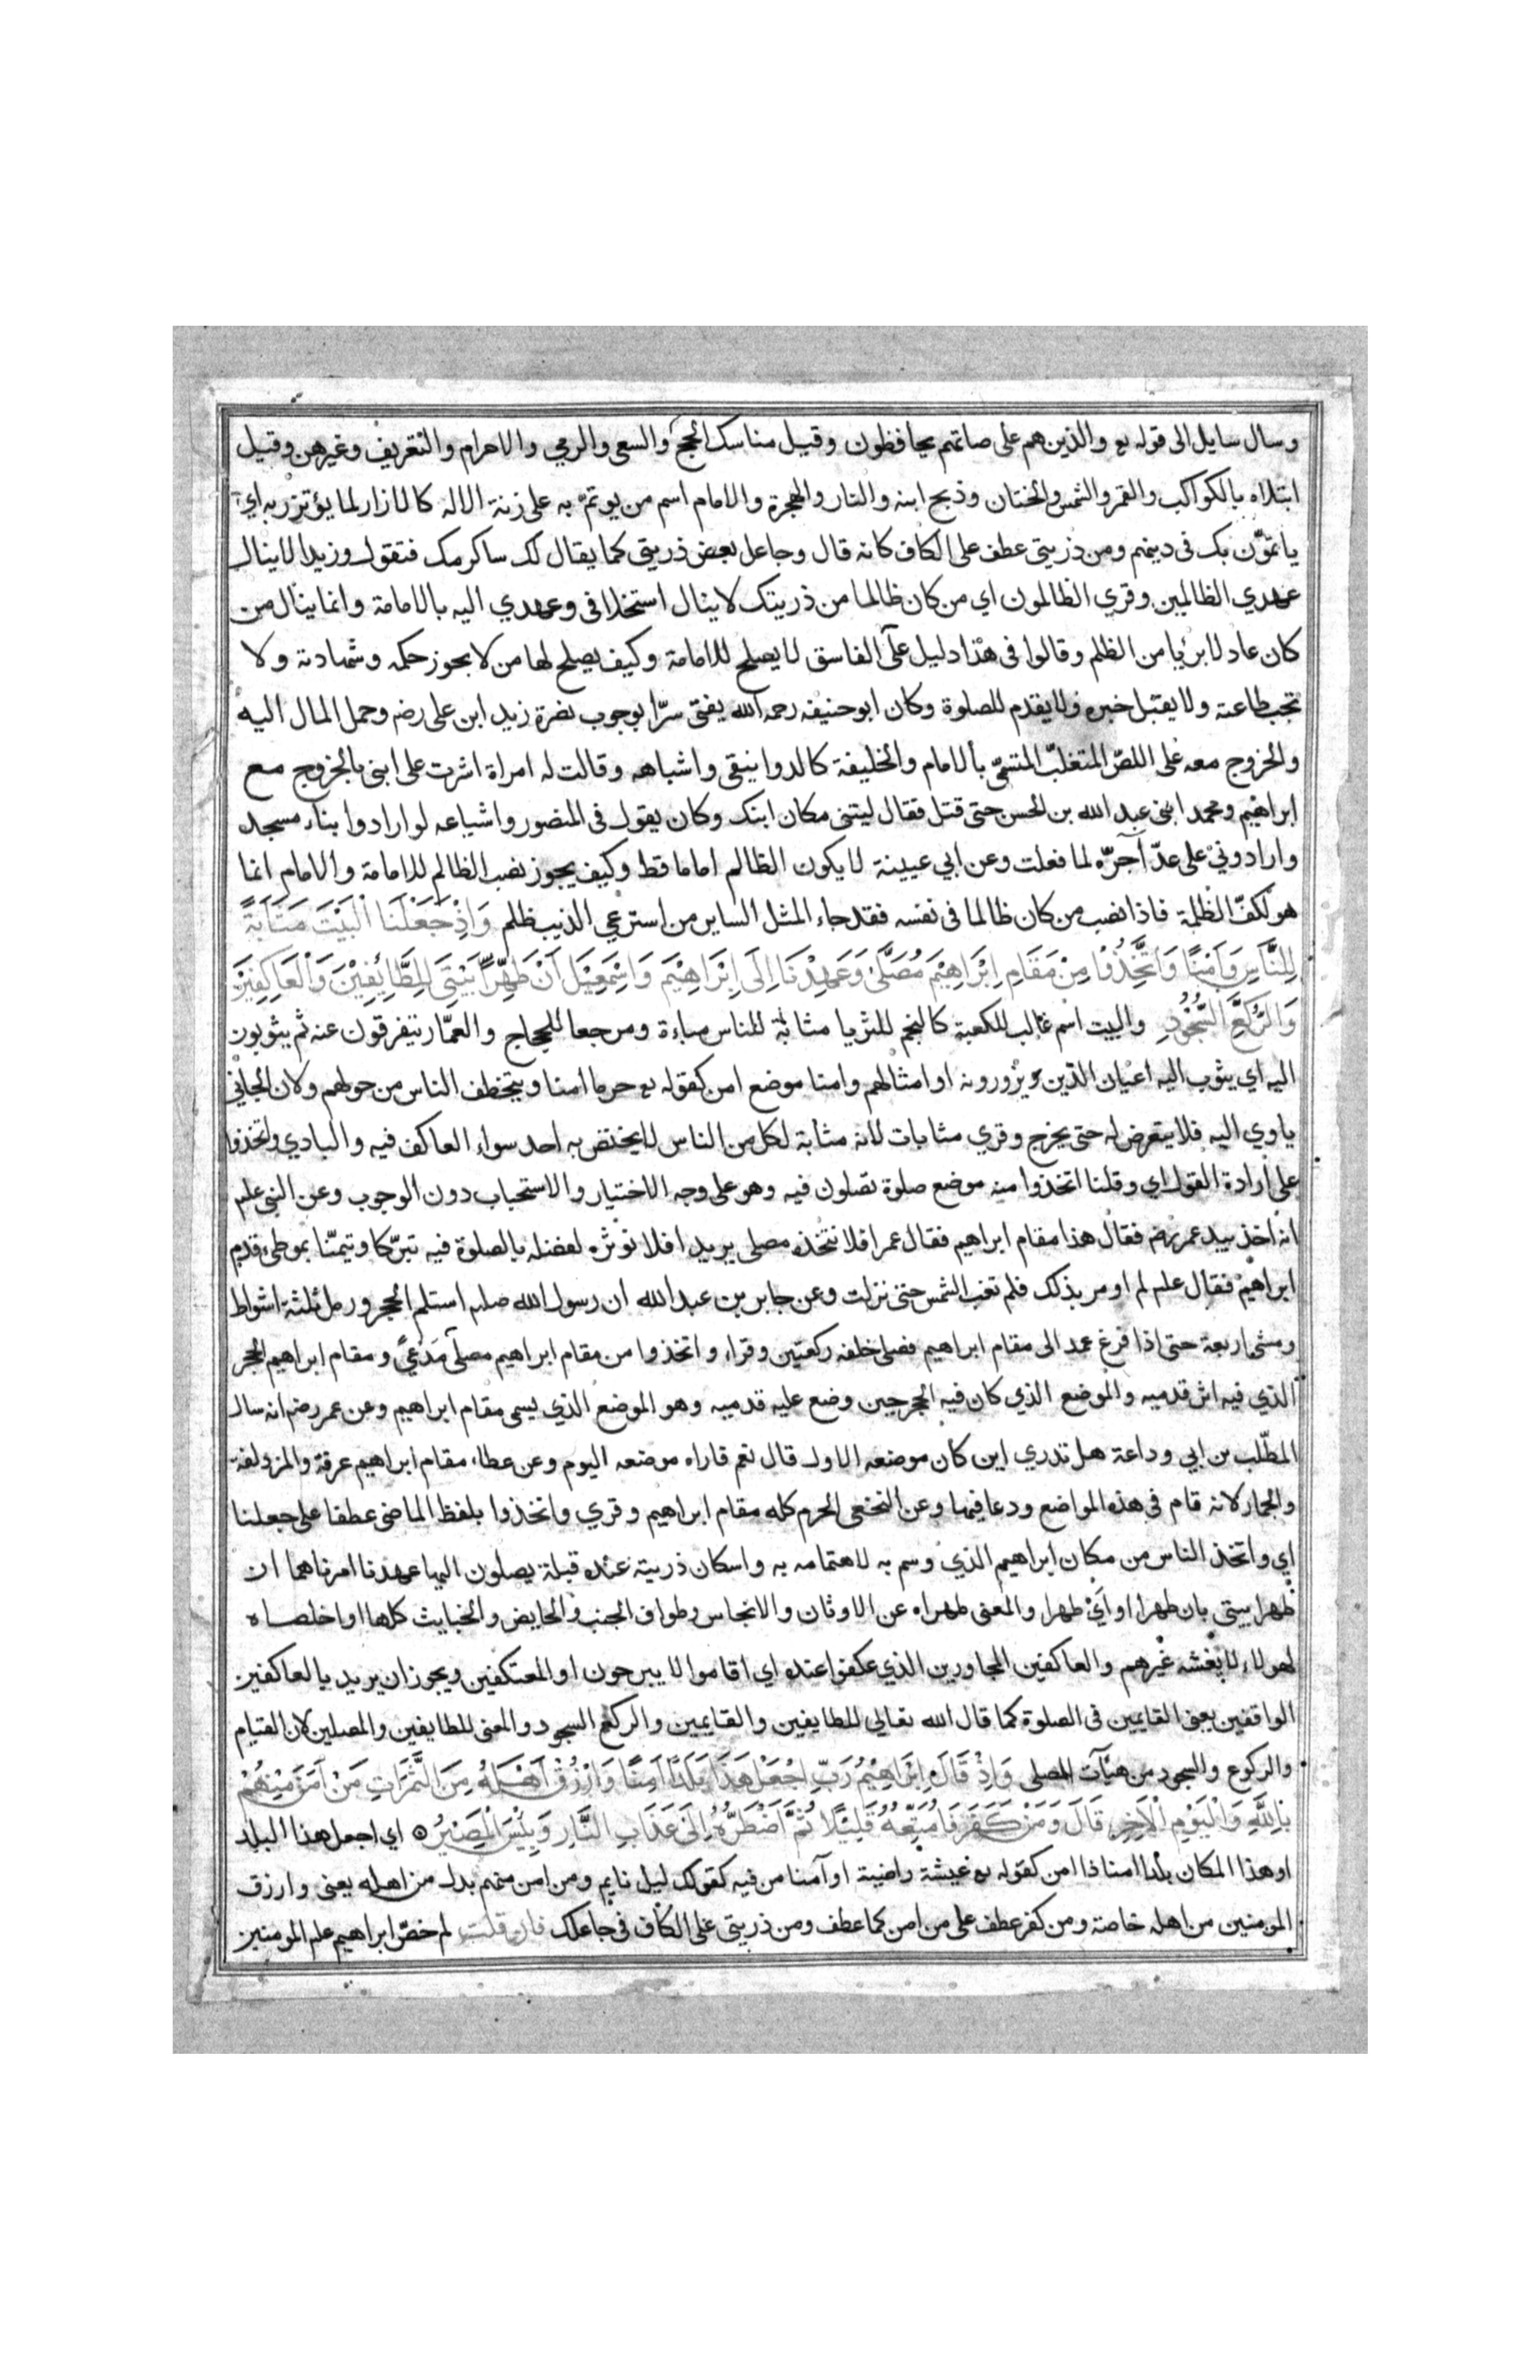 وسال سايل الى قوله تع والذين هم على صلاتهم يحافظون وقيل مناسك الحج والسعى والرمي والاحرام والتعريف وغيرهن وقيل
ابتلاه بالكواكب والقمر والشمس والختان وذبح ابنه والنار والهجرة والامام اسم من يوتم به على زنة الاله كالازار لما يؤتزر به اي
ياتمون بك فى دينهم ومن ذريتى عطف على الكاف كانه قال وجاعل بعض ذريتى كما يقال لك ساكرمك فتقول وزيدا لا ينال
عهدي الظالمين وقري الظالمون اي من كان ظالما من ذريتك لا ينال استخلافى وعهدي اليه بالامامة وانما ينال من
كان عادلا بريا من الظلم وقالوا فى هذا دليل على الفاسق لا يصلح للامامة وكيف يصلح لها من لا يجوز حكمه وشهادته ولا
تجب طاعته ولا يقبل خبره ولا يقدم للصلوة وكان ابو حنيفه رحمه الله يفتى سرا بوجوب نصرة زيد ابن على رضه وحمل المال اليه
والخروج معه على اللص المتغلب المتسمى بالامام والخليفة كالدوانيقى واشباهه وقالت له امراة اشرت على ابنى بالخروج مع
ابراهيم ومحمد ابنى عبد الله بن الحسن حتى قتل فقال ليتنى مكان ابنك وكان يقول فى المنصور واشياعه لو ارادوا بناء مسجد
وارادونى على عد آجره لما فعلت وعن ابي عيينة لا يكون الظالم اماما قط وكيف يجوز نصب الظالم للامامة والامام انما
هو لكف الظلمة فاذا نصب من كان ظالما فى نفسه فقد جاء المثل الساير من استرعي الذيب ظلم وَاِذْ جَعَلْنَا الْبَيْتَ مَثَابَةً
لِلنَّاسِ وَاَمْنًا وَاتَّخِذُوْا مِنْ مَقَامِ اِبْرَاهِيْمَ مُصَلًّى وَعَهِدْنَا اِلَى اِبْرَاهِيْمَ وَاِسْمٰعِيْلَ اَنْ طَهِّرَا بَيْتِىَ لِلطَّائِفِيْنَ وَالْعَاكِفِيْنَ
وَالرُّكَّعِ السُّجُوْدِ والبيت اسم غالب للكعبة كالنجم للثريا مثابة للناس مباءة ومرجعا للحجاج والعمار يتفرقون عنه ثم يثوبون
اليه اي يثوب اليه اعيان الذين يزورونه او امثالهم وامنا موضع امن كقوله تع حرما امنا ويتخطف الناس من حولهم ولان الجانى
ياوي اليه فلا يتعرض له حتى يخرج وقري مثابات لانه مثابة لكل من الناس لا يختص به احد سواء العاكف فيه والبادي واتخذوا
على ارادة القول اي وقلنا اتخذوا منه موضع صلوة تصلون فيه وهو على وجه الاختيار والاستحباب دون الوجوب وعن النبى علم
انه اخذ بيد عمر رضه فقال هذا مقام ابراهيم فقال عمر افلا نتخذه مصلى يريد افلا نوثره لفضله بالصلوة فيه تبركا وتيمنا بموطىء قدم
ابراهيم فقال علم لم اومر بذلك فلم تغب الشمس حتى نزلت وعن جابر بن عبد الله ان رسول الله صلم استلم الحجر ورمل ثلثة اشواط
ومشى اربعة حتى اذا فرغ عمد الى مقام ابراهيم فصلى خلفه ركعتين وقراء واتخذوا من مقام ابراهيم مصلى مَدْعًى ومقام ابراهيم الحجر
الذي فيه اثر قدميه والموضع الذي كان فيه الحجر حين وضع عليه قدميه وهو الموضع الذي يسمى مقام ابراهيم وعن عمر رضه انه سال
المطلب بن ابي وداعة هل تدري اين كان موضعه الاول قال نعم فاراه موضعه اليوم وعن عطاء مقام ابراهيم عرفة والمزدلفة
والجمار لانه قام فى هذه المواضع ودعا فيها وعن النخعى الحرم كله مقام ابراهيم وقري واتخذوا بلفظ الماضى عطفا على جعلنا
اي واتخذ الناس من مكان ابراهيم الذي وسم به لاهتمامه به واسكان ذريته عنده قبلة يصلون اليها عهدنا امرناهما ان
طهرا بيتى بان طهرا او اَيْ طهرا والمعنى طهراه عن الاوثان والانجاس وطواف الجنب والحايض والخبايث كلها او اخلصاه
لهولاء لا يغشه غيرهم والعاكفين المجاورين الذي عكفوا عنده اي اقاموا لا يبرحون او المعتكفين ويجوز ان يريد بالعاكفين
الواقفين يعنى القايمين فى الصلوة كما قال الله تعالي للطايفين والقايمين والركع السجود والمعنى للطايفين والمصلين لان القيام
والركوع والسجود من هيآت المصلى وَاِذْ قَالَ اِبْرَاهِيْمُ رَبِّ اجْعَلْ هَذَا بَلَدًا اٰمِنًا وَارْزُقْ اَهْلَهُ مِنَ الثَّمَرَاتِ مَنْ اٰمَنَ مِنْهُمْ
بِاللَّهِ وَالْيَوْمِ الْاٰخِرِ قَالَ وَمَنْ كَفَرَ فَاُمَتِّعُهُ قَلِيْلًا ثُمَّ اَضْطَرُّهُ اِلَى عَذَابِ النَّارِ وَبِئْسَ الْمَصِيْرُ ۝ اي اجعل هذا البلد
او هذا المكان بلدا امنا ذا امن كقوله تع عيشة راضية او آمنا من فيه كقولك ليل نايم ومن امن منهم بدل من اهله يعنى وارزق
المومنين من اهله خاصة ومن كفر عطف على من امن كما عطف ومن ذريتى على الكاف فى جاعلك فان قلت لم خص ابراهيم علم المومنين